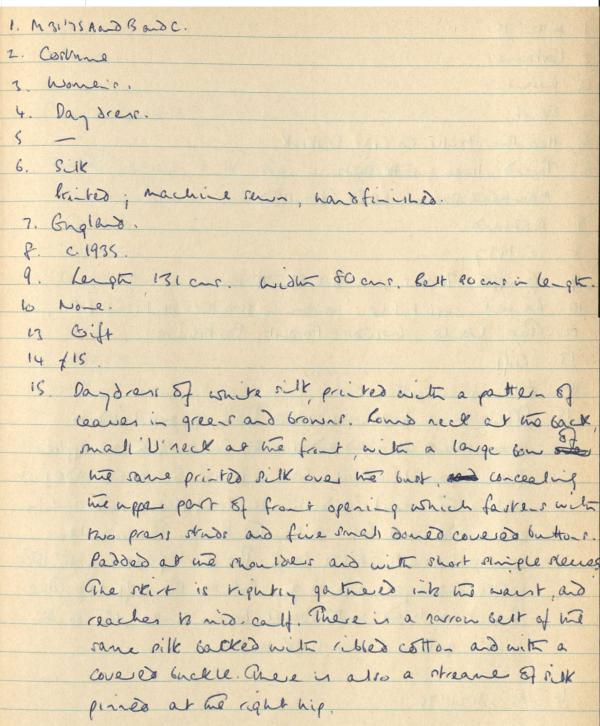 1. M 31'75 A and B and C.
2. Costume
3. Women's.
4. Day dress.
5 —
6. Silk
Printed; machine sewn, hand finished.
7. England.
8. c. 1935.
9. Length 131 cms. Width 80 cms. Belt 90 cms in length.
10 None.
13 Gift
14 £15.
15. Day dress of white silk, printed with a pattern of
leaves in greens and browns. Round neck at the back,
small 'U' neck at the front, with a large bow of
the same printed silk over the bust, concealing
the upper part of front opening which fastens with
two press studs and five small domed covered buttons.
Padded at the shoulders and with short simple sleeves
The skirt is tightly gathered into the waist, and
reaches to mid-calf. There is a narrow belt of the
same silk backed with ribbed cotton and with a
covered buckle. There is also a streamer of silk
pinned at the right hip.